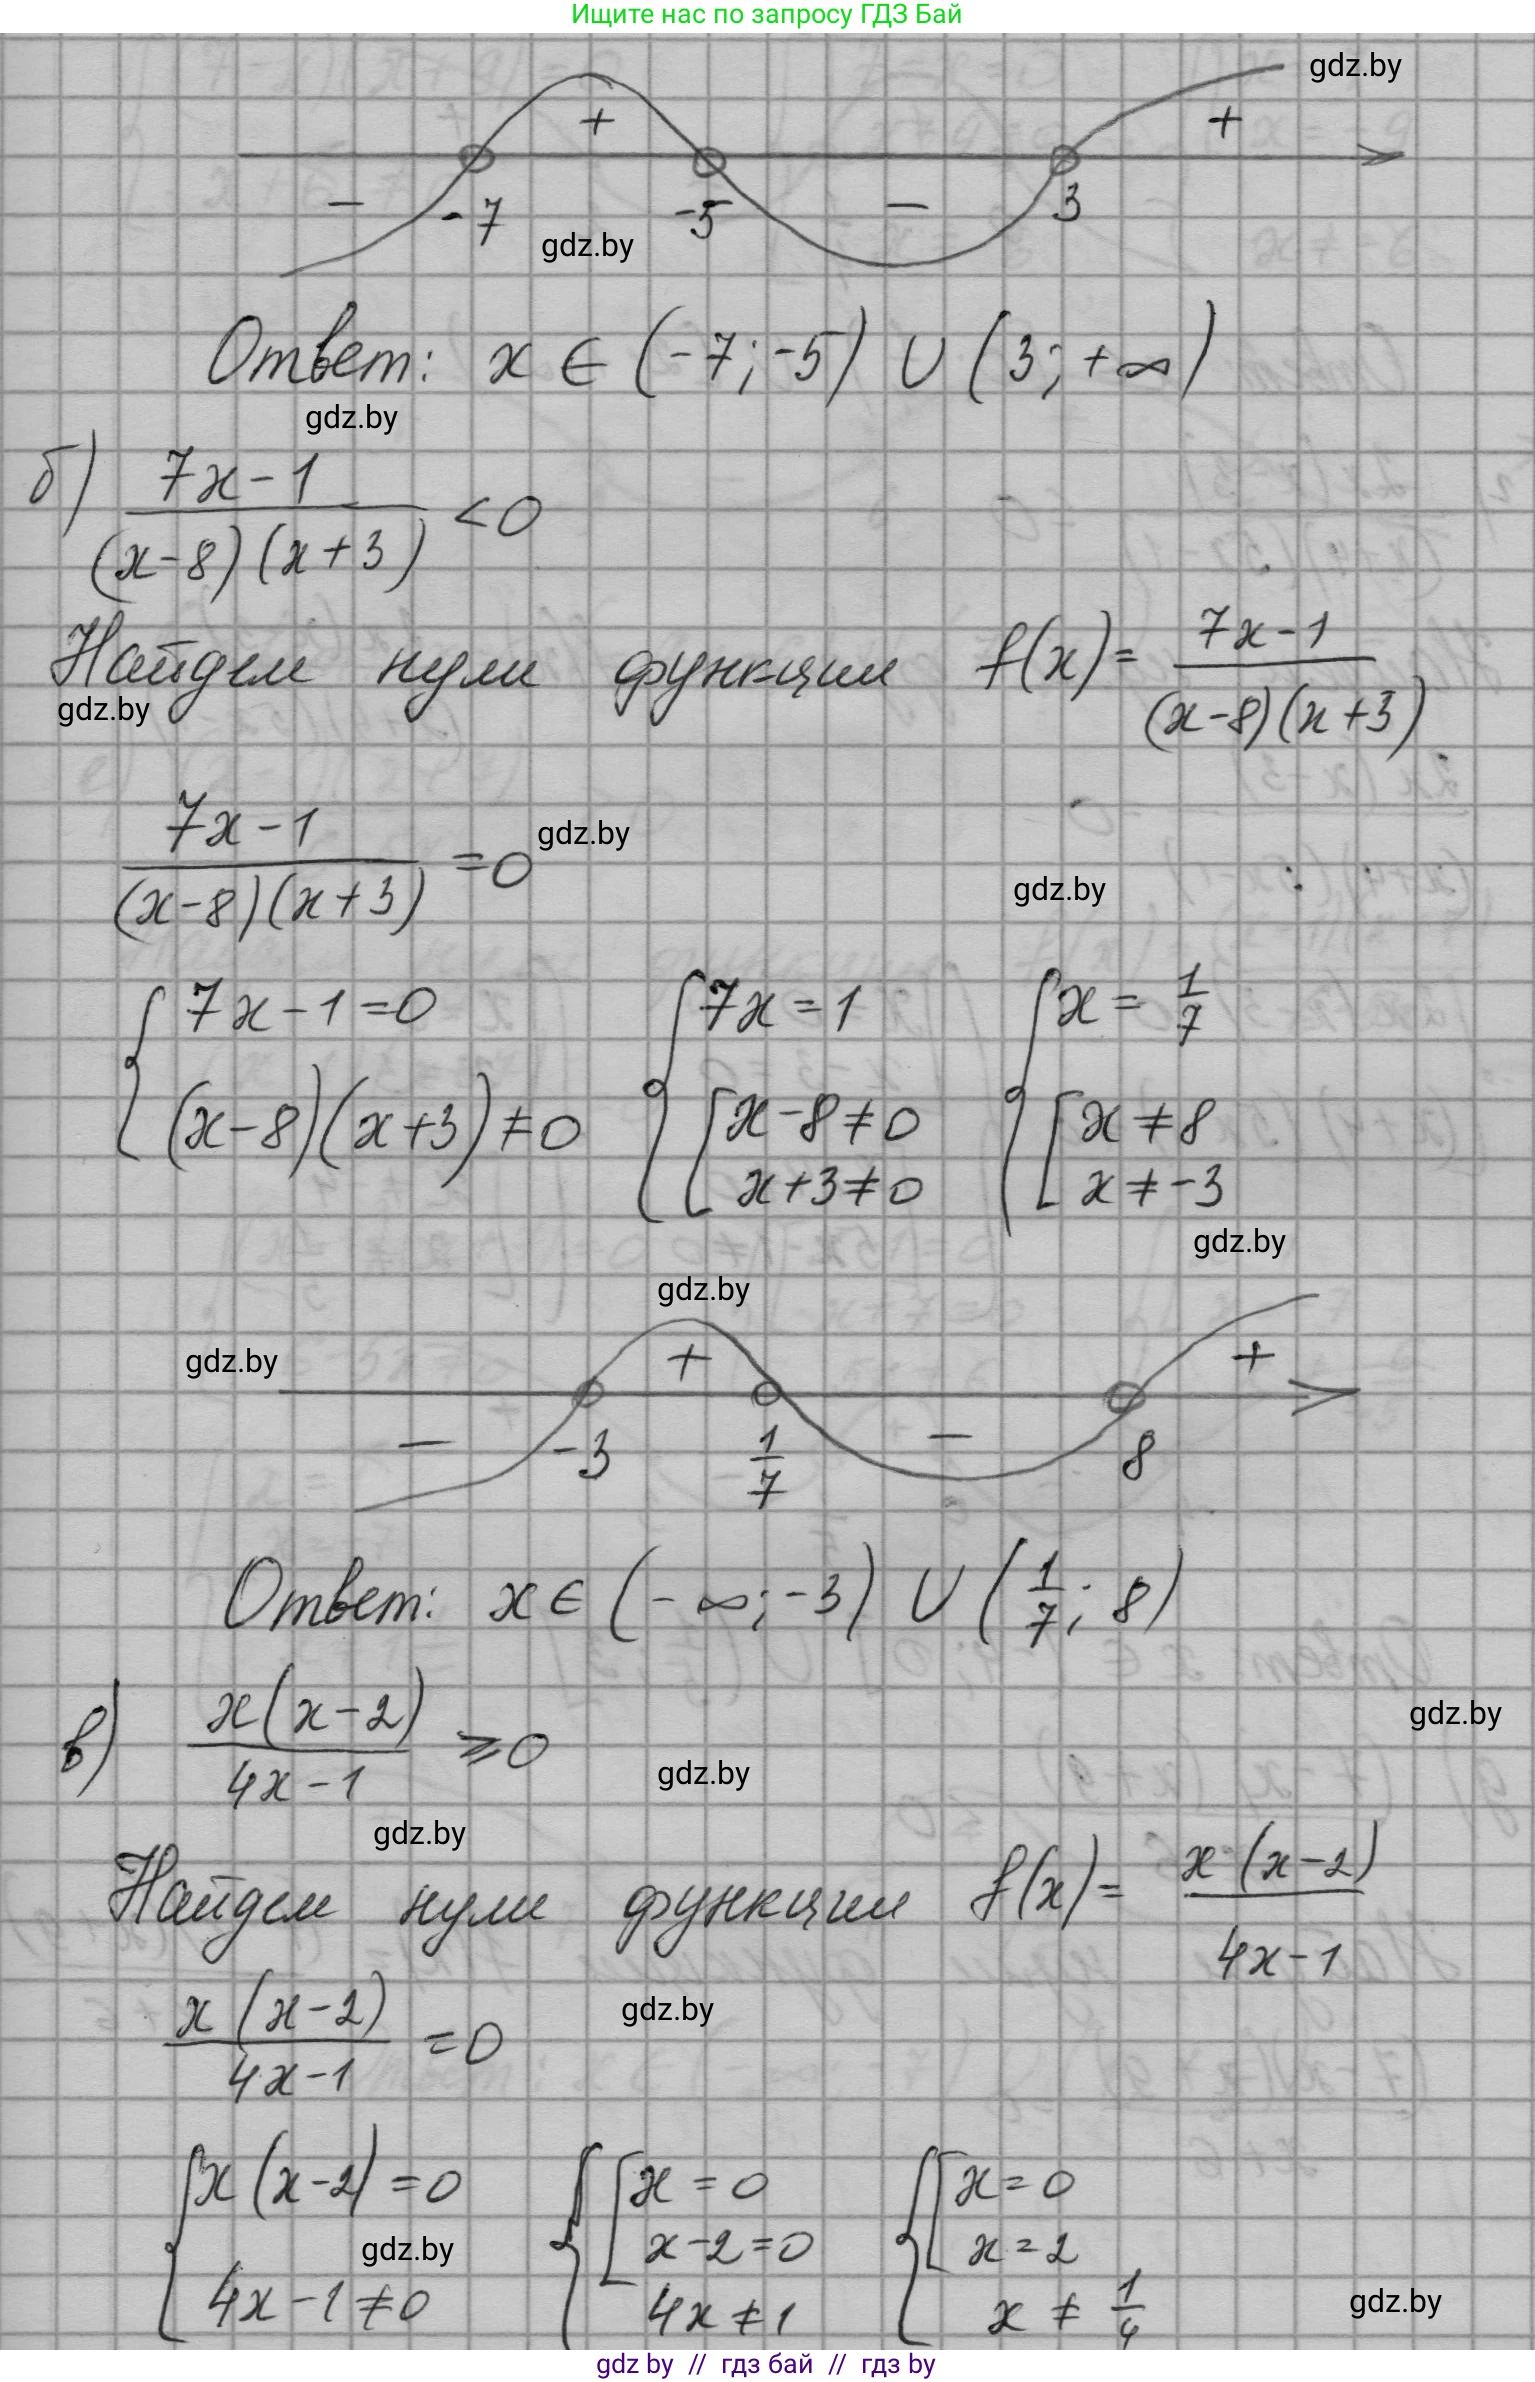 Ищите нас по запросу ГДЗ Бай
gdz.by
+ +
− -7 -5 − 3
gdz.by
Ответ: x ∈ (-7; -5) ∪ (3; +∞)
gdz.by
б) (7x-1)/((x-8)(x+3)) < 0
Найдем нули функции f(x) = (7x-1)/((x-8)(x+3))
gdz.by
(7x-1)/((x-8)(x+3)) = 0
gdz.by
gdz.by
{ 7x-1=0 { 7x=1 { x = 1/7
(x-8)(x+3)≠0 [ x-8≠0 [ x≠8
x+3≠0 x≠-3
gdz.by
gdz.by
gdz.by
+ +
− -3 1/7 − 8
Ответ: x ∈ (-∞; -3) ∪ (1/7; 8)
в) x(x-2)/(4x-1) ≥ 0
gdz.by
gdz.by
gdz.by
Найдем нули функции f(x) = x(x-2)/(4x-1)
x(x-2)/(4x-1) = 0
gdz.by
{ x(x-2)=0 { [ x=0 { [ x=0
x-2=0 x=2
gdz.by
4x-1≠0 4x≠1 x≠1/4
gdz.by
gdz by // гдз бай // гдз by